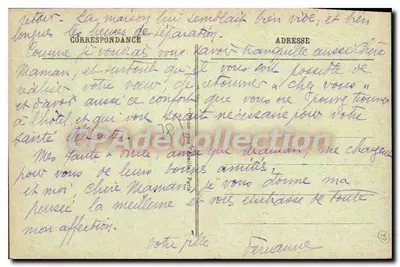 retour. La maison lui semblait bien vide, et bien
longues les heures de séparation.
CORRESPONDANCE
ADRESSE
Comme je voudrais vous savoir tranquille aussi Chère
Maman, et surtout qu'il vous soit possible de
réaliser votre vœu, de retourner "chez vous"
et d'avoir aussi ce confort que vous ne pouvez trouver
à l'hôtel, et qui vous serait nécessaire pour votre
santé
PADeCollection
Mes, ainsi que Maman, me chargent
pour vous de leurs bonnes amitiés,
et moi Chère Maman, je vous donne ma
pensée la meilleure et vous embrasse de toute
mon affection.
Votre fille